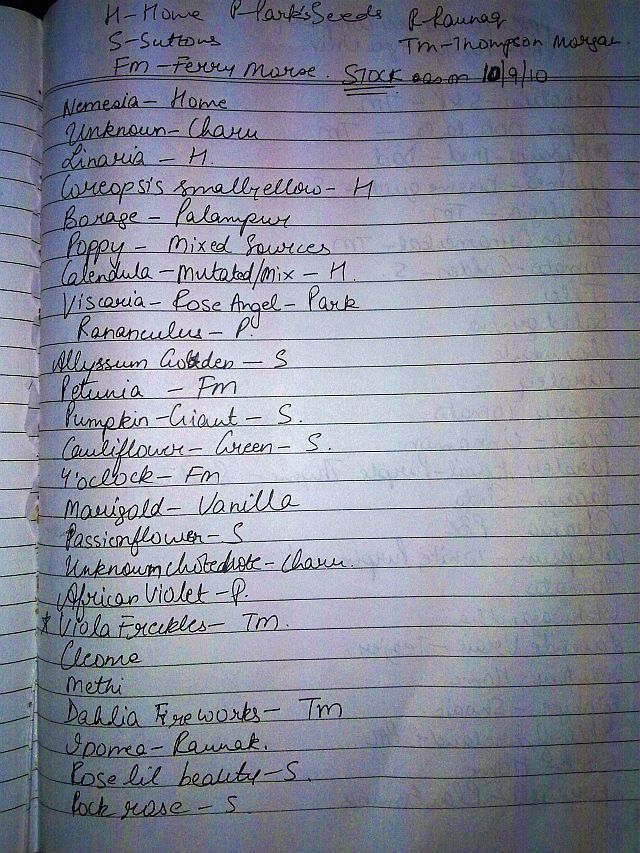 H-Home P-Park's Seeds R-Raunaq
S-Suttons TM-Thompson Morgan
FM-Ferry Morse. STOCK as on 10/9/10
Nemesia - Home
Unknown - Charu
Linaria - H.
Coreopsis small yellow - H
Borage - Palampur
Poppy - Mixed Sources
Calendula - Mutated/Mix - H.
Viscaria - Rose Angel - Park
Rananculus - P.
Allyssum Golden - S
Petunia - FM
Pumpkin - Giant - S.
Cauliflower - Green - S.
4'oclock - FM
Marigold - Vanilla
Passionflower - S
Unknown chotechote - Charu.
African Violet - P.
* Viola Freckles - TM.
Cleome
Methi
Dahlia Fireworks - TM
Ipomea - Raunak.
Rose lil beauty - S.
Rock rose - S